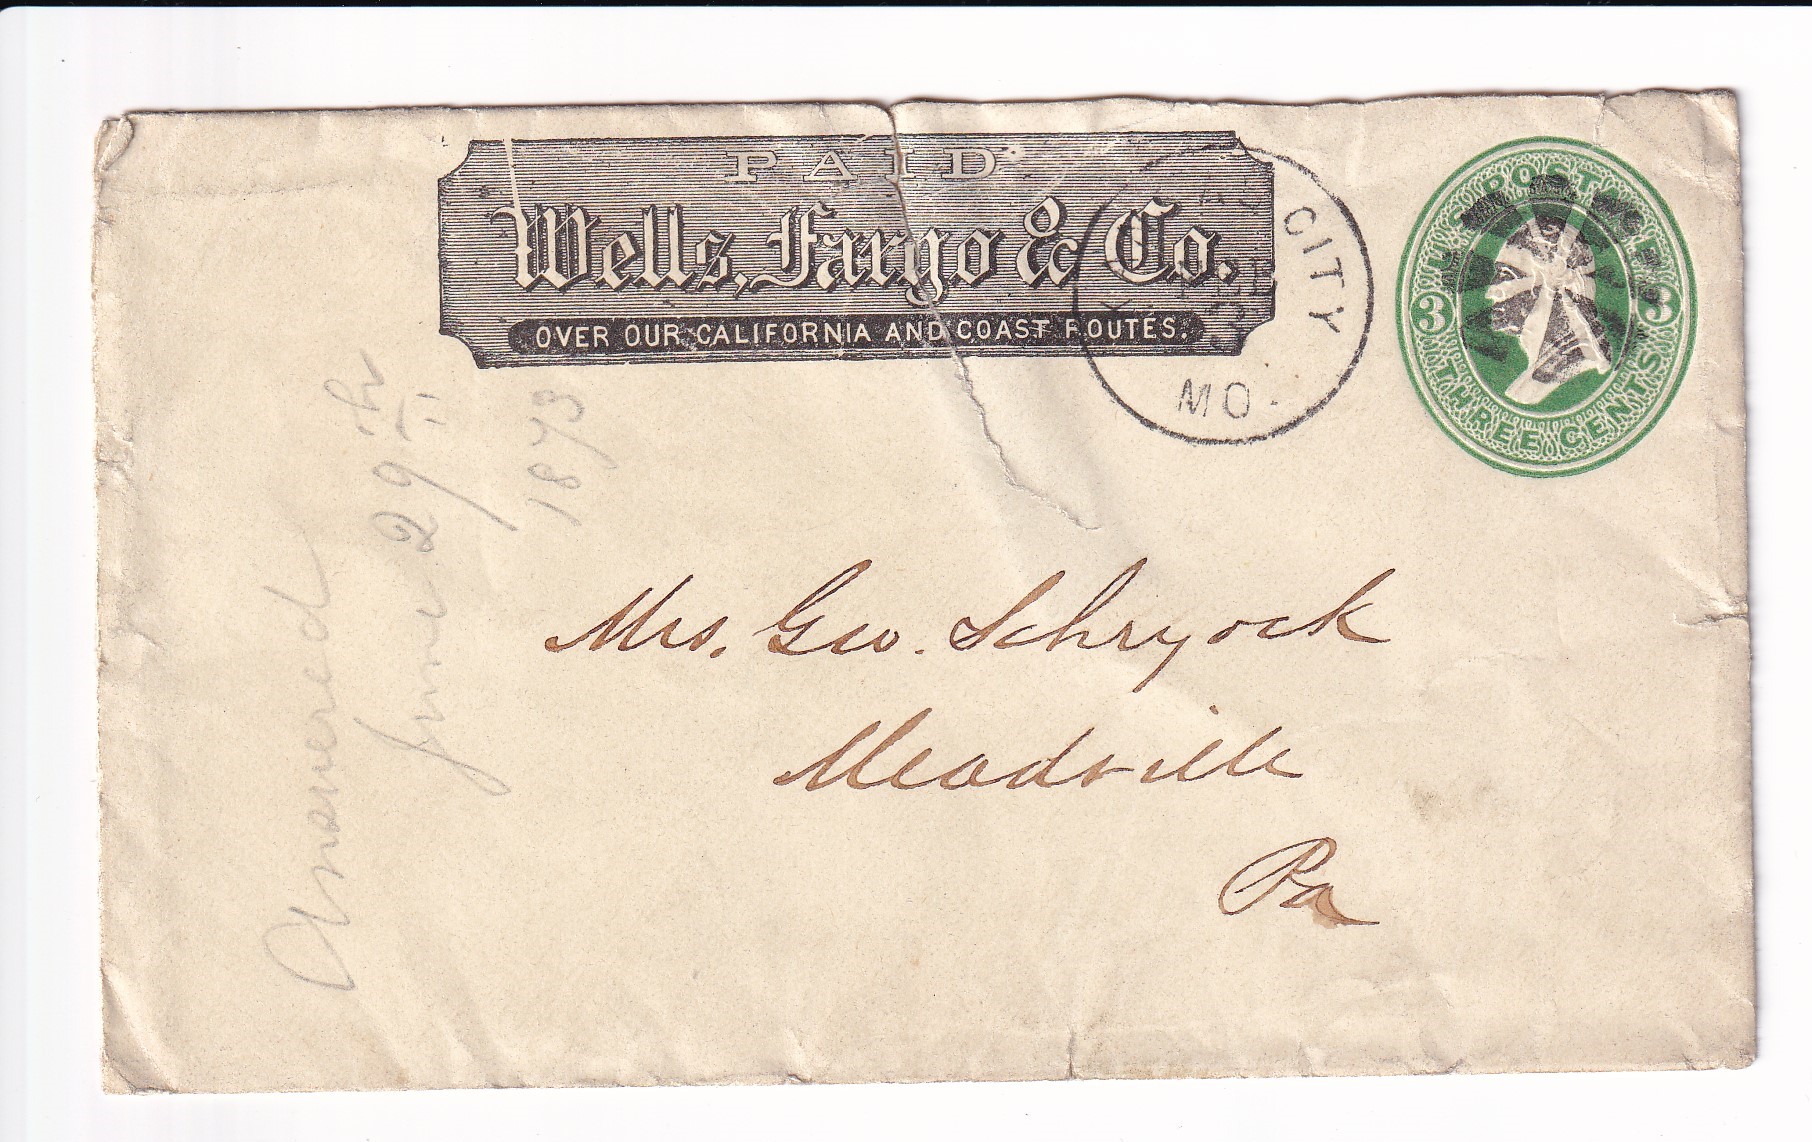 PAID
Wells, Fargo & Co.
OVER OUR CALIFORNIA AND COAST ROUTES.
CITY
MO.
U.S. POSTAGE
3 3
THREE CENTS
Answered
June 29th
1873
Mrs. Geo. Schryock
Meadville
Pa